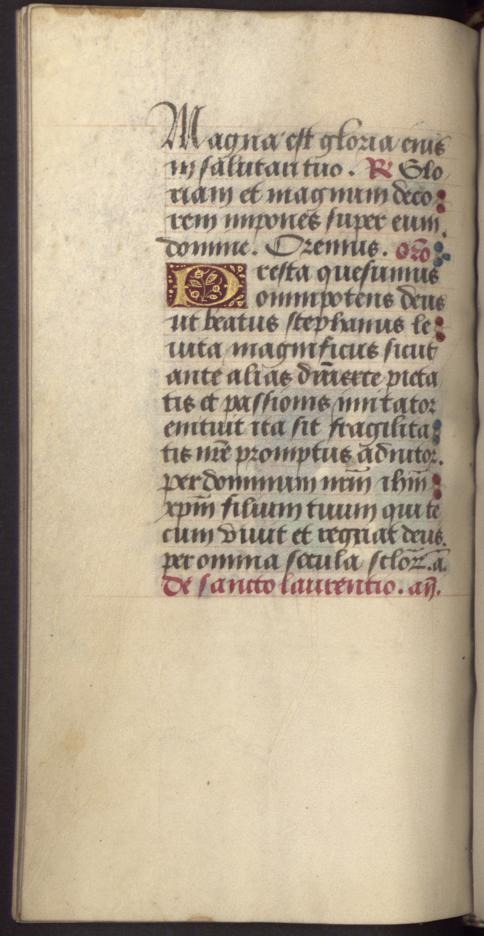 Magna est gloria eius
in salutari tuo. R Glo
riam et magnum deco
rem impones super eum
domine. Oremus. orō
Presta quesumus
omnipotens deus
ut beatus stephanus le
uita magnificus sicut
ante alias
tis et passionis imitator
emituit ita sit fragilita
tis nr̄e promptus adiutor.
per dominum nrm̄ ihm̄
xpm̄ filium tuum qui te
cum viuit et regnat deus.
per omnia secula sclor̄. a.
De sancto laurentio. añ.